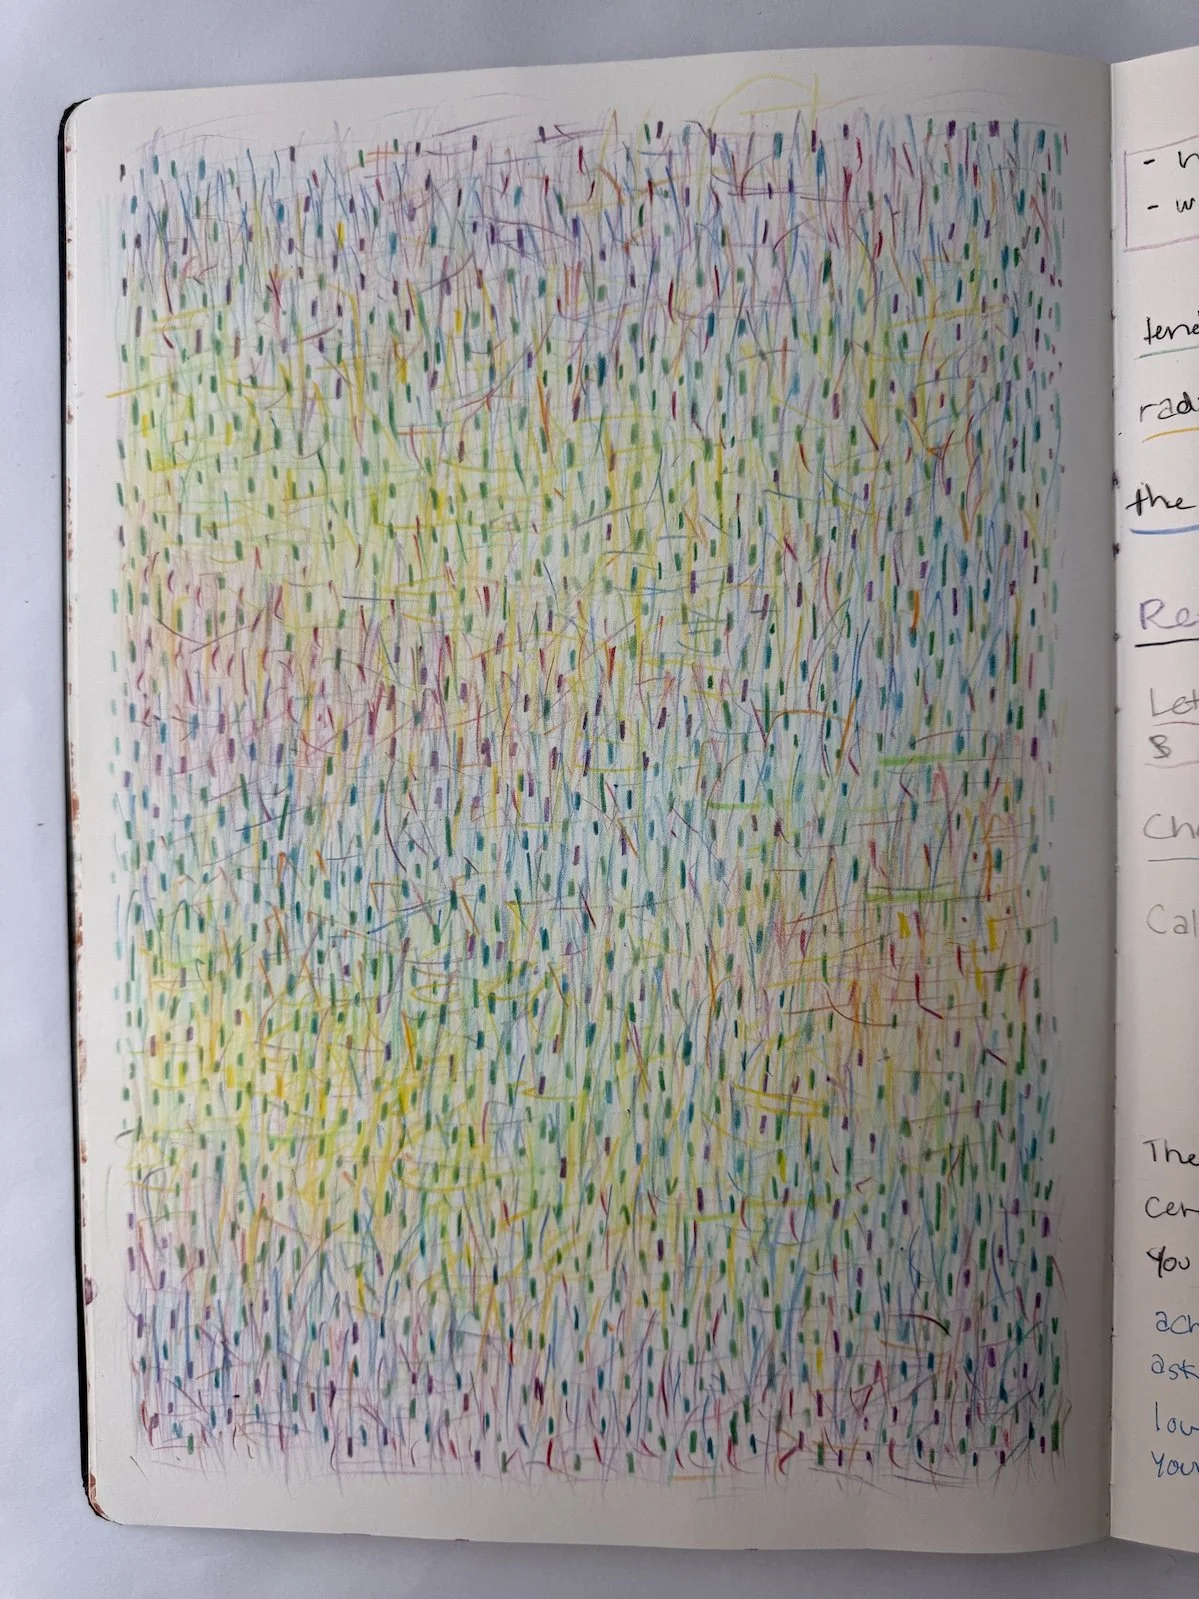 - n
- w
tend
rad
the
Re
Let
&
Ch
Cal
The
cer
You
ach
ask
lov
Your